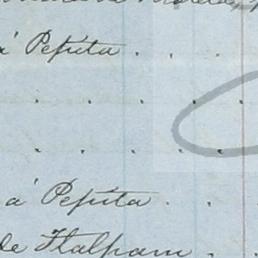 á Pepita . . .
. . . .
. . . .
a á Pepita . .
de Tlalpam . .